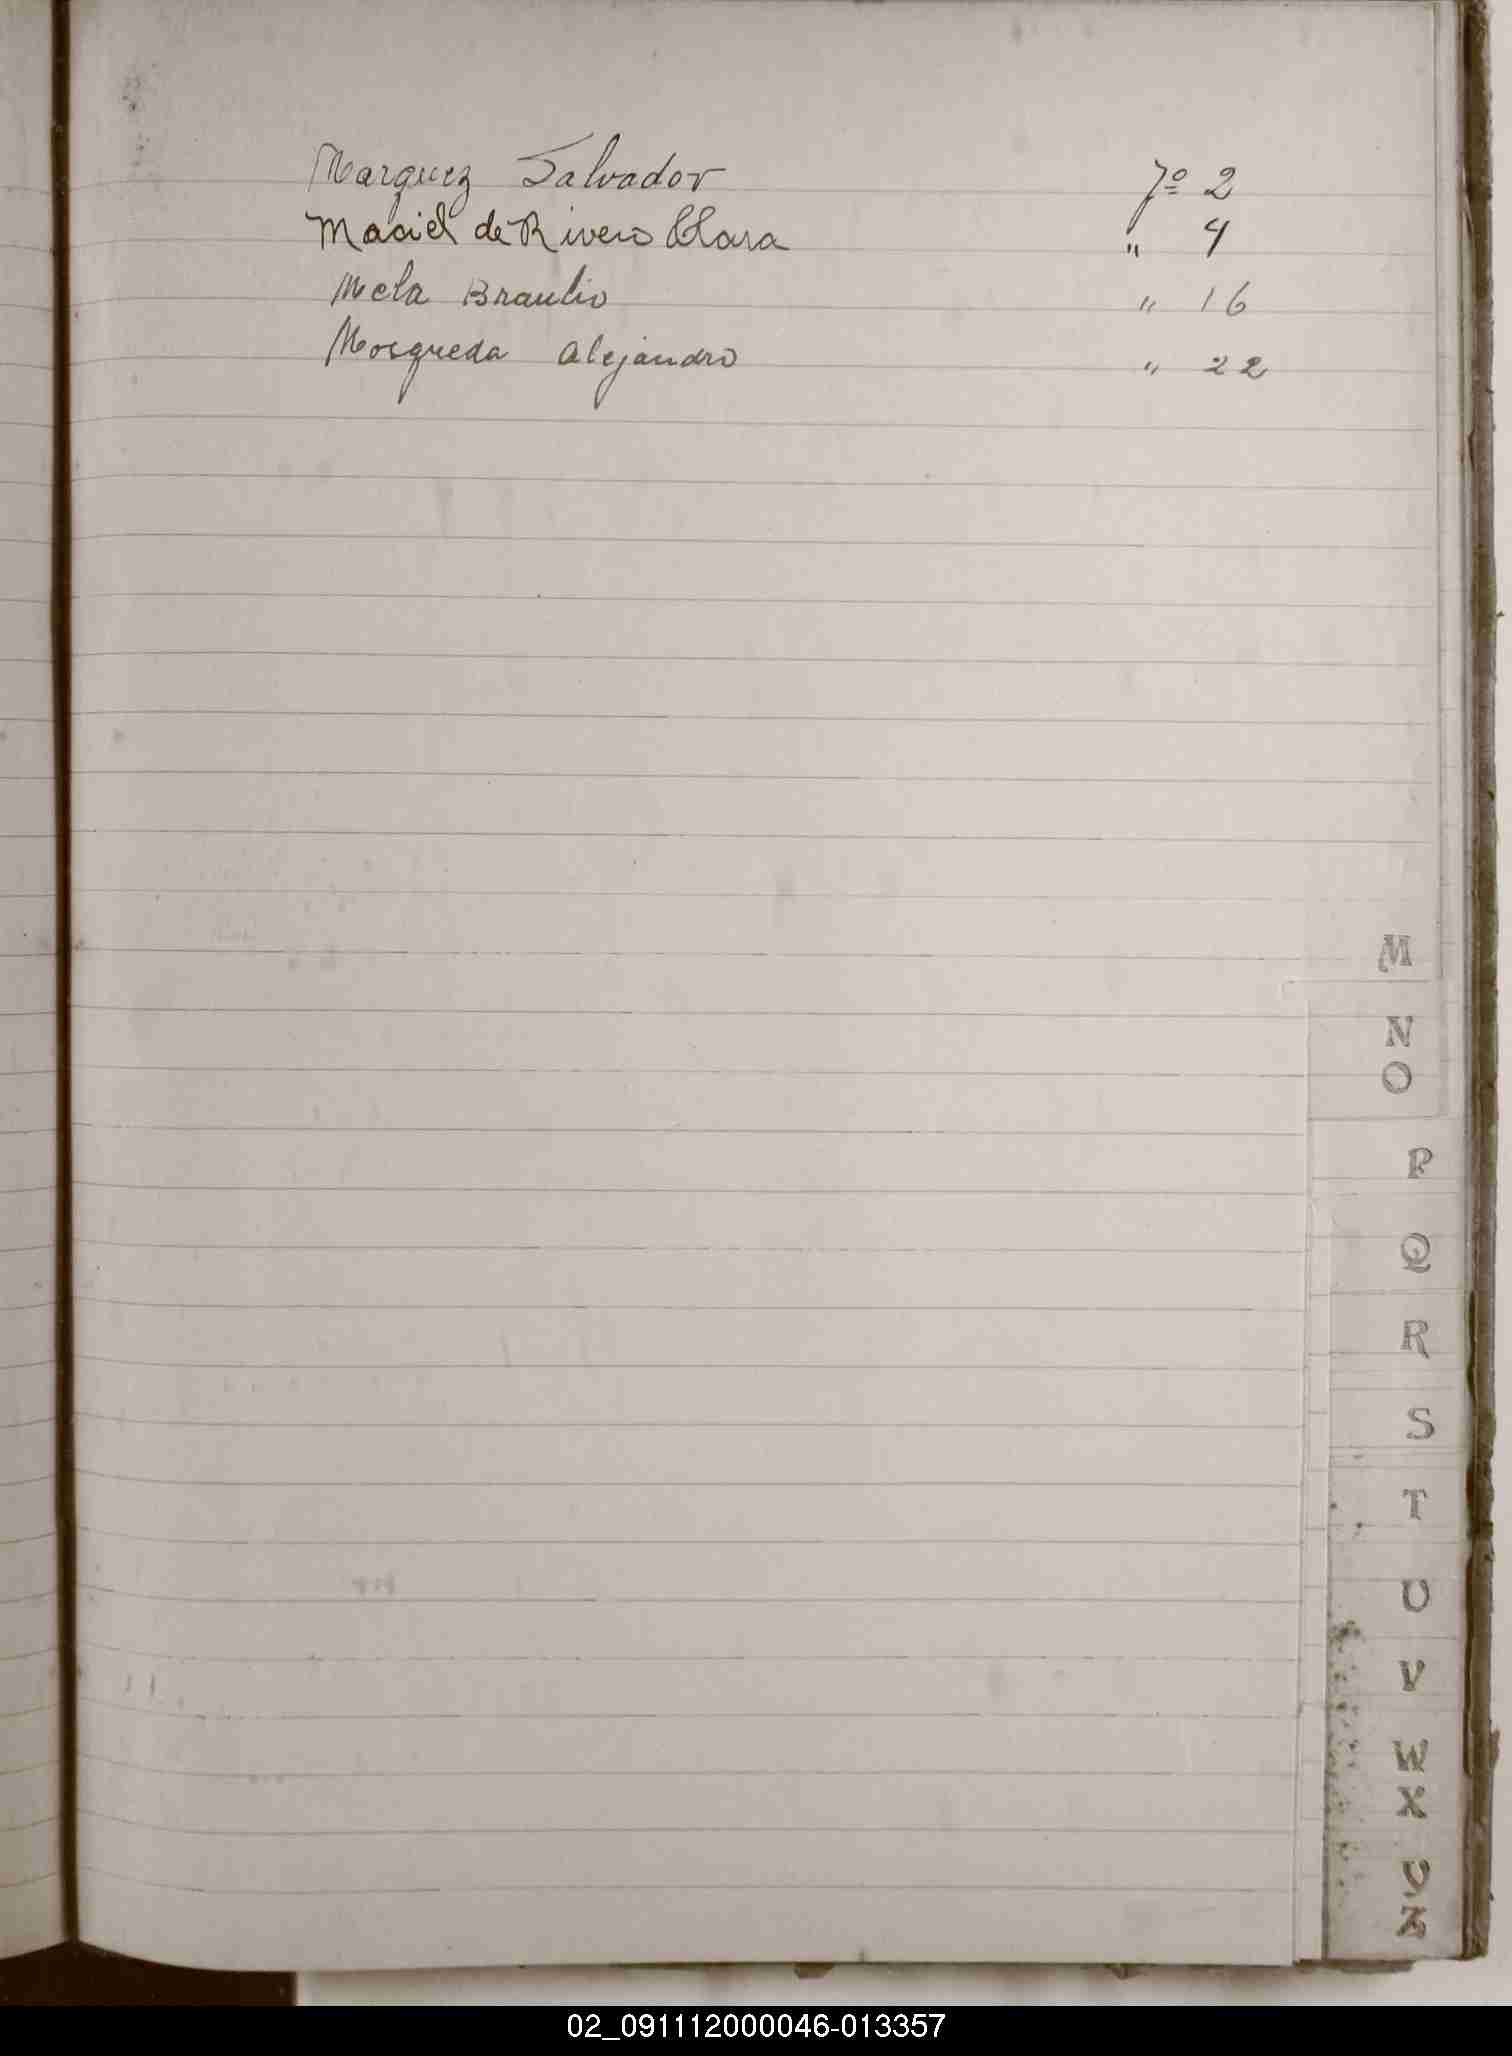 Marquez Salvador 7º 2
Maciel de Rivero Clara " 4
Mela Braulio " 16
Mosqueda Alejandro " 22
M
N
O
P
Q
R
S
T
U
V
W
X
Y
Z
02_091112000046-013357